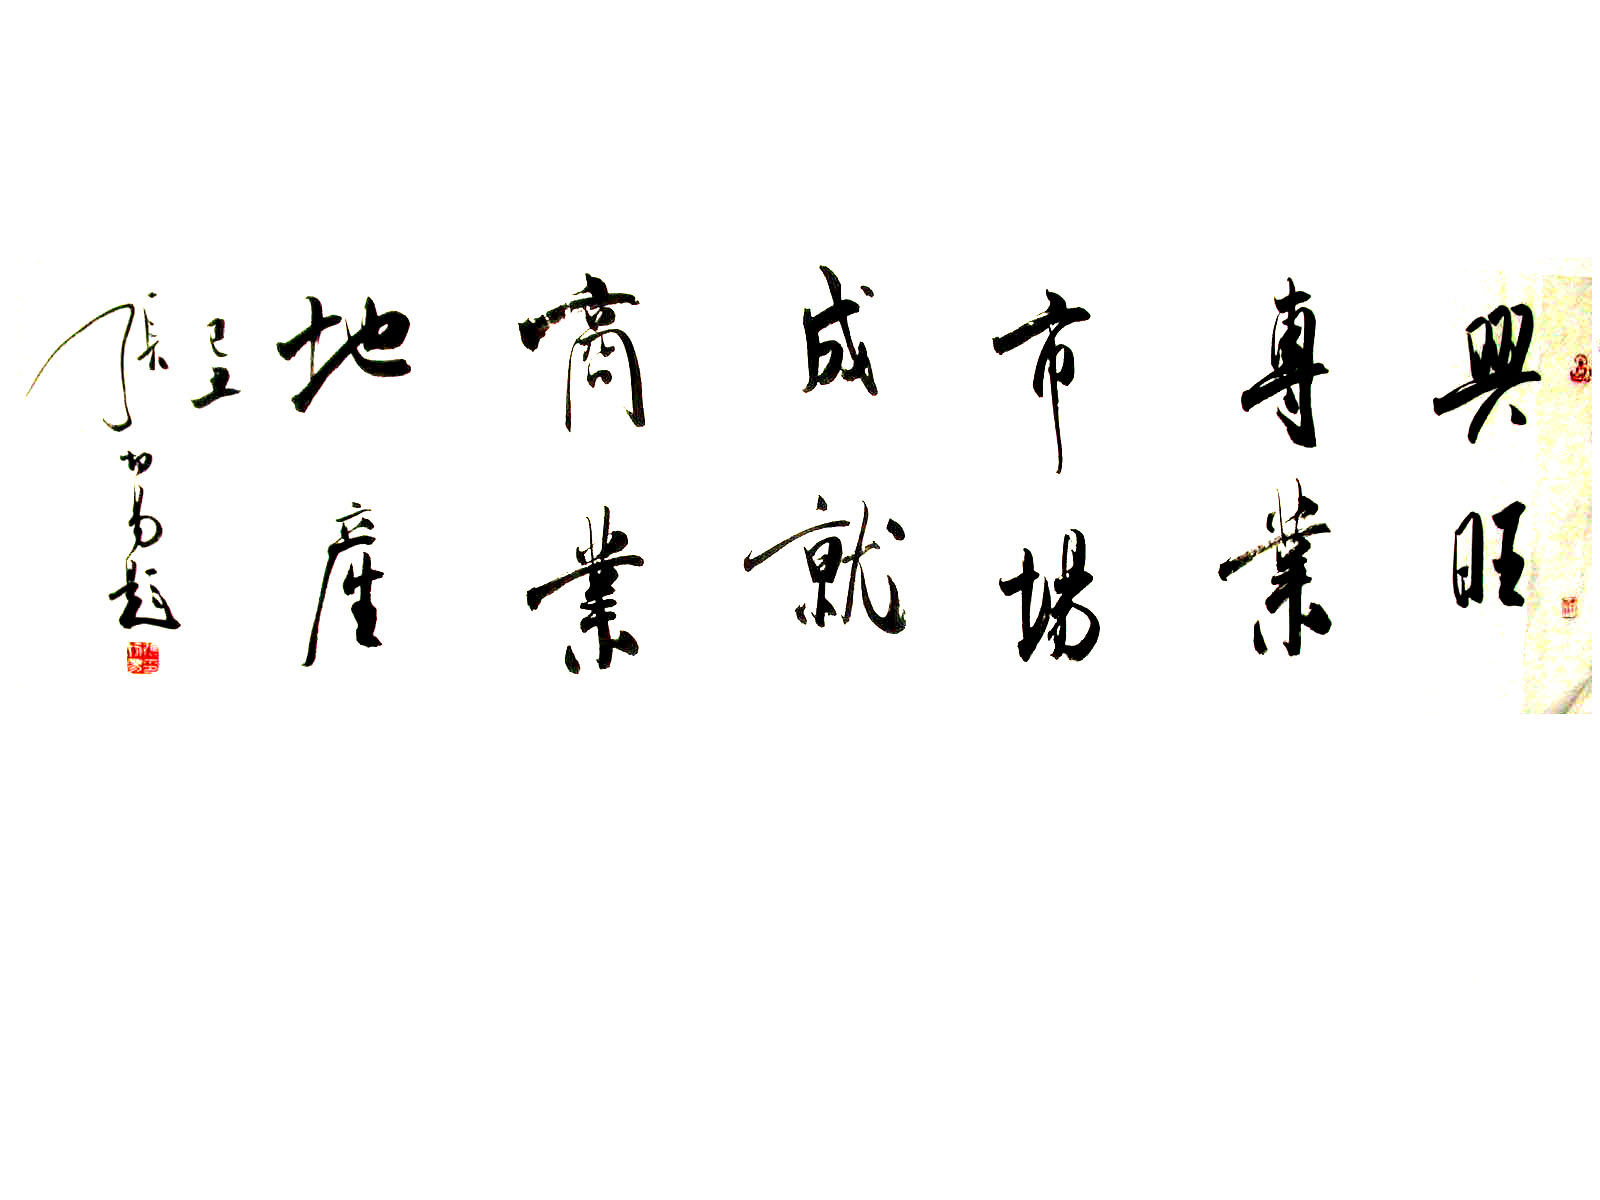 興旺
專業
市場
成就
商業
地產
己丑
張 易題